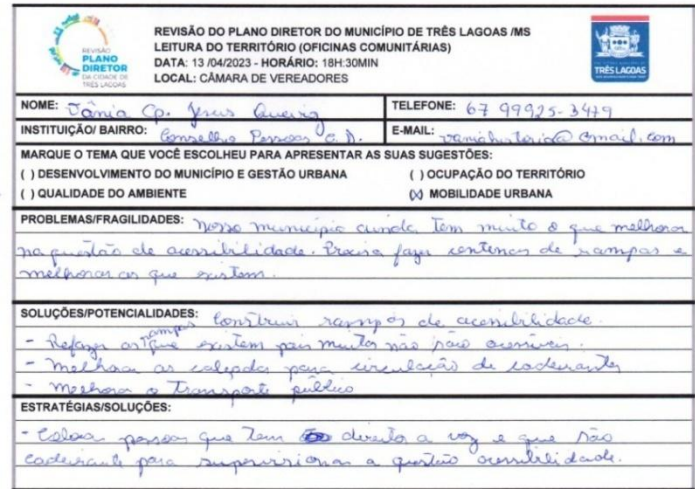 REVISÃO
PLANO
DIRETOR
DA CIDADE DE
TRÊS LAGOAS
REVISÃO DO PLANO DIRETOR DO MUNICÍPIO DE TRÊS LAGOAS /MS
LEITURA DO TERRITÓRIO (OFICINAS COMUNITÁRIAS)
DATA: 13 /04/2023 - HORÁRIO: 18H:30MIN
LOCAL: CÂMARA DE VEREADORES
TRÊS LAGOAS
NOME: Vânia Ap. Jesus Queiroz TELEFONE: 67 99925-3479
INSTITUIÇÃO/ BAIRRO: Conselho Pessoas C. D. E-MAIL: vaniahistoria@gmail.com
MARQUE O TEMA QUE VOCÊ ESCOLHEU PARA APRESENTAR AS SUAS SUGESTÕES:
( ) DESENVOLVIMENTO DO MUNICÍPIO E GESTÃO URBANA ( ) OCUPAÇÃO DO TERRITÓRIO
( ) QUALIDADE DO AMBIENTE (X) MOBILIDADE URBANA
PROBLEMAS/FRAGILIDADES: Nosso município ainda tem muito o que melhorar
na questão de acessibilidade. Precisa fazer centenas de rampas e
melhorar as que existem.
SOLUÇÕES/POTENCIALIDADES: Construir rampas de acessibilidade.
- Refazer as rampas que existem pois muitas não são acessíveis.
- Melhorar as calçadas para circulação de cadeirantes
- Melhorar o transporte público
ESTRATÉGIAS/SOLUÇÕES:
- Colocar pessoas que tem direito a voz e que são
cadeirante para supervisionar a questão acessibilidade.